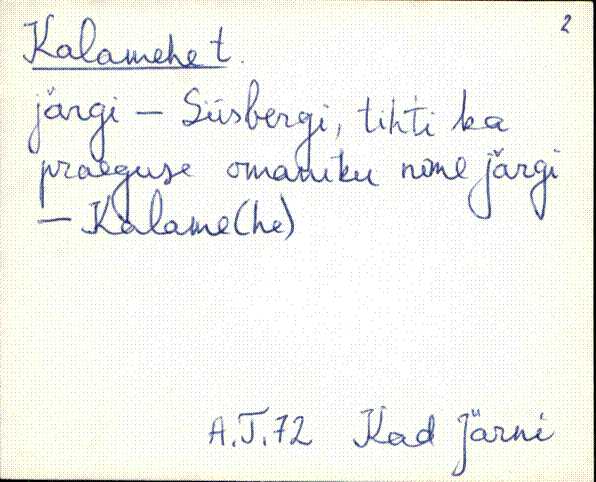 2
Kalamehe t.
järgi – Siisbergi, tihti ka
praeguse omaniku nime järgi
– Kalame(he)
A.T.72 Kad Järni